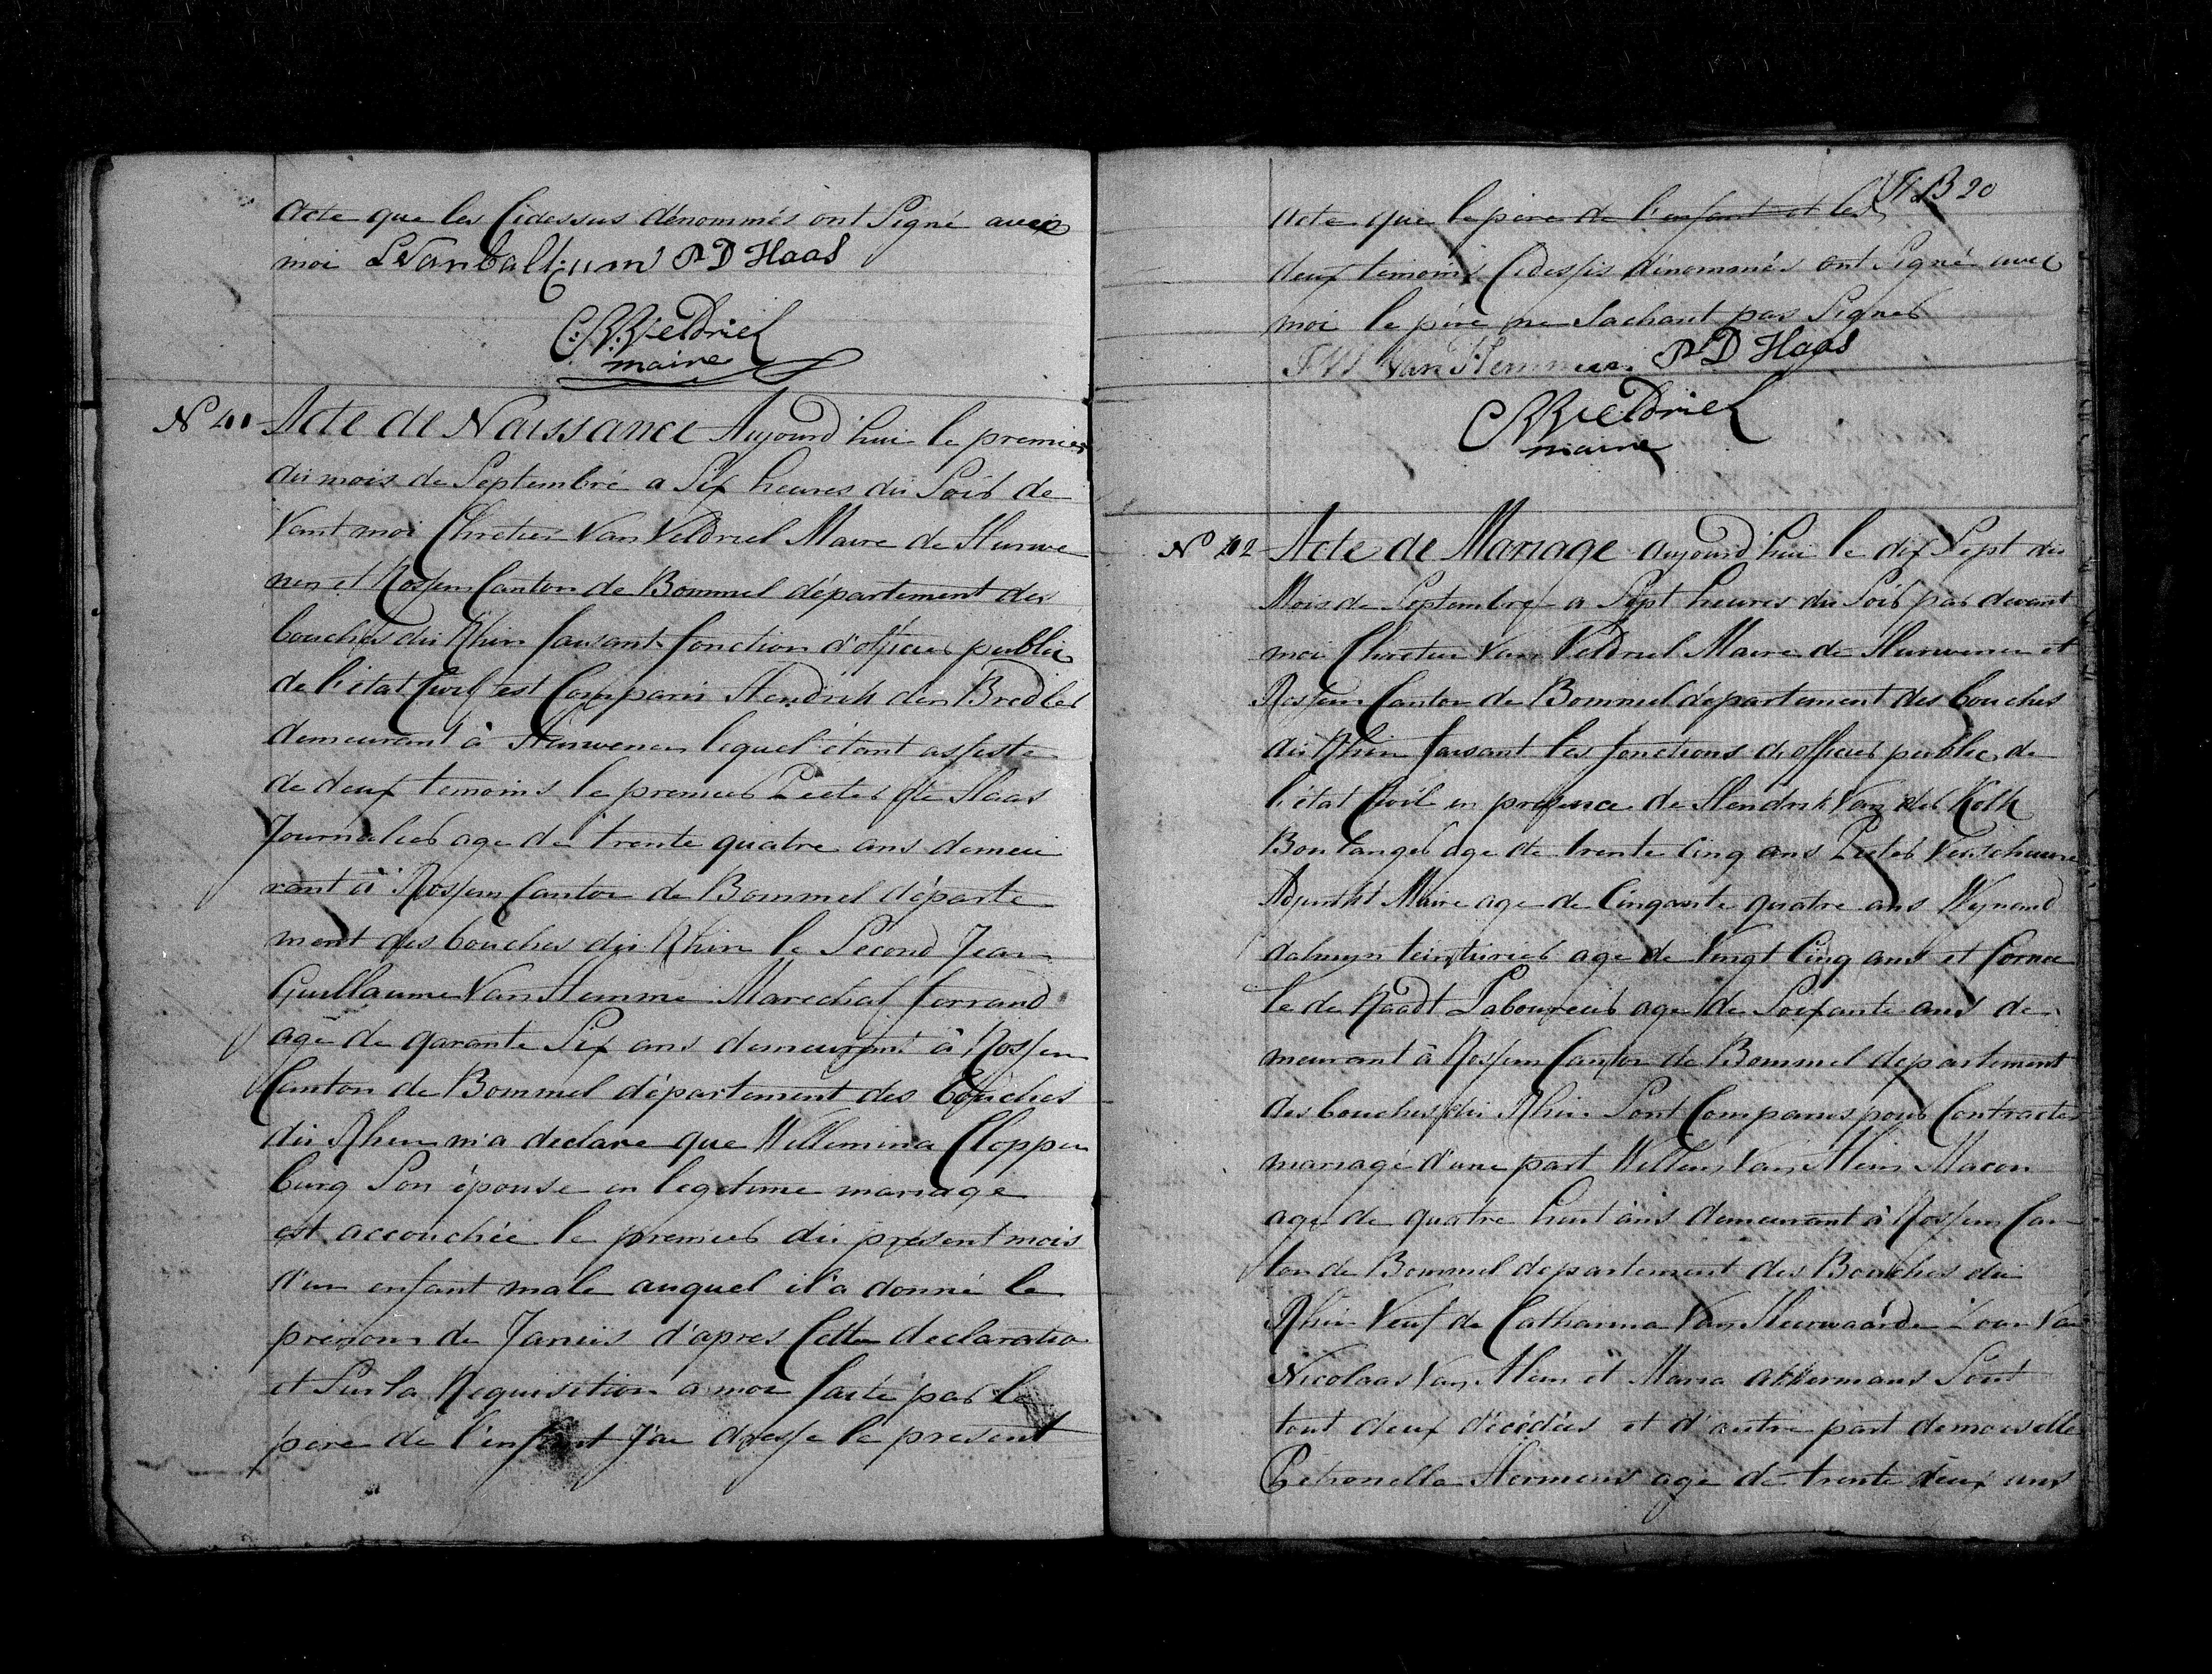 Acte que les Cidessus dénommés ont Signé avec
moi P D Haas
C. V. Veldriel
maire
Acte de Naissance Aujourd'hui le premier
du mois de Septembre a Six heures du Soir de
vant moi Chretien Van Veldriel Maire de Hurwe
nen et Rossem Canton de Bommel département des
bouches du Rhin faisant fonction d'officier public
de l'état Civil est Comparu Hendrik den Bredler
demeurant à Hurwenen lequel étant assiste
de deux temoins le premier Peeter de Haas
Journalier age de trente quatre ans demeu
rant à Rossem Canton de Bommel départe
ment des bouches du Rhin le Second Jean
Guillaume Van Hemme Marechal ferrand
agé de qarante Six ans demeurant à Rossem
Canton de Bommel département des Bouches
du Rhin m'a declare que Willemina Cloppen
burg Son épouse en legitime mariage
est accouchée le premier du présent mois
d'un enfant male auquel il a donné le
prénom de Janus d'apres Cette declaratio
et Sur la Requisition a moi faite par le
pere de l'enfant J'ai dresse le present
20
Acte que le pere de l'enfant et les
deux temoins Cidessus dénommés ont Signé avec
moi le pére ne Sachant pas Signer
J W Van Hemmen P D Haas
C V Veldriel
maire
N° 42 Acte de Mariage aujourd'hui le dix Sept du
Mois de Septembre a Sept heures du Soir par devant
moi Chretien Van Veldriel Maire de Hurwenen et
Rossem Canton de Bommel département des bouches
du Rhin faisant les fonctions d'officier public de
l'état Civil en presence de Hendrik Van der Kolk
Boulanger age de trente Cinq ans Peeter Verschuure
Adjunkt Maire age de Cinqante quatre ans Wynand
dalmyn teinturier age de Vingt Cinq ans et Corne
le de Raadt Laboureur age de Soixante ans de
meurant à Rossem Canton de Bommel departement
des bouches du Rhin Sont Comparus pour Contracter
mariage d'une part Willem Van Alem Macon
age de quatre huit ans demeurant à Rossem Can
ton de Bommel departement des Bouches du
Rhin Veuf de Catharina Van Heerwaarden
Nicolaas Van Alem et Maria Akkermans Sont
tout deux décédées et d'autre part demoiselle
Petronella Hermens age de trente deux ans